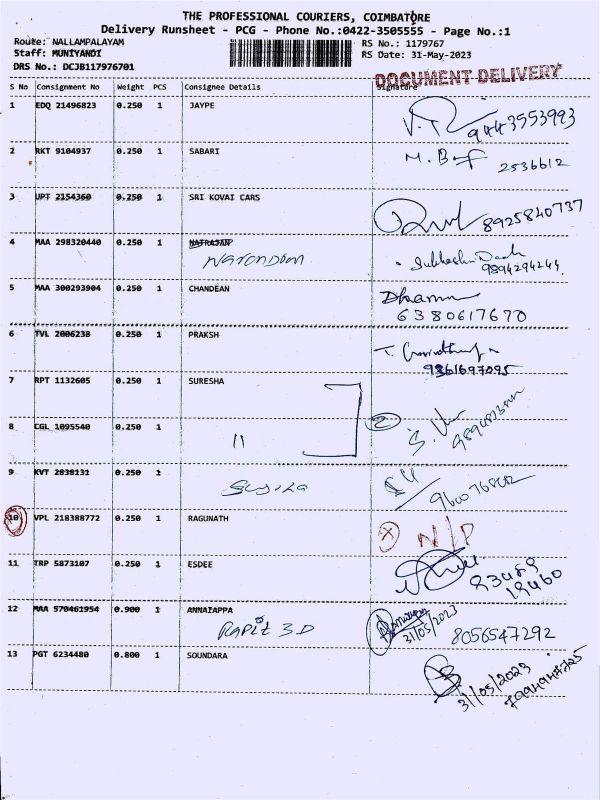 THE PROFESSIONAL COURIERS, COIMBATORE
Delivery Runsheet - PCG - Phone No.:0422-3505555 - Page No.:1
Route: NALLAMPALAYAM RS No.: 1179767
Staff: MUNIYANDI RS Date: 31-May-2023
DRS No.: DCJB117976701
DOCUMENT DELIVERY
S No Consignment No Weight PCS Consignee Details Signature
1 EDQ 21496823 0.250 1 JAYPE
9443553993
2 RKT 9104937 0.250 1 SABARI
2536612
3 UPT 2154360 0.250 1 SRI KOVAI CARS
8925840737
4 MAA 298320440 0.250 1 NATRAJAN
9894294244
5 MAA 300293904 0.250 1 CHANDEAN Dhanam
6380617670
6 TVL 2006238 0.250 1 PRAKSH
9361697095
7 RPT 1132605 0.250 1 SURESHA
8 CGL 1095540 0.250 1
11 2
9 KVT 2838131 0.250 1
10 VPL 218388772 0.250 1 RAGUNATH
N/P
11 TRP 5873107 0.250 1 ESDEE
12 MAA 570461954 0.900 1 ANNAIAPPA
31/05/2023 8056547292
13 PGT 6234480 0.800 1 SOUNDARA
31/05/2023